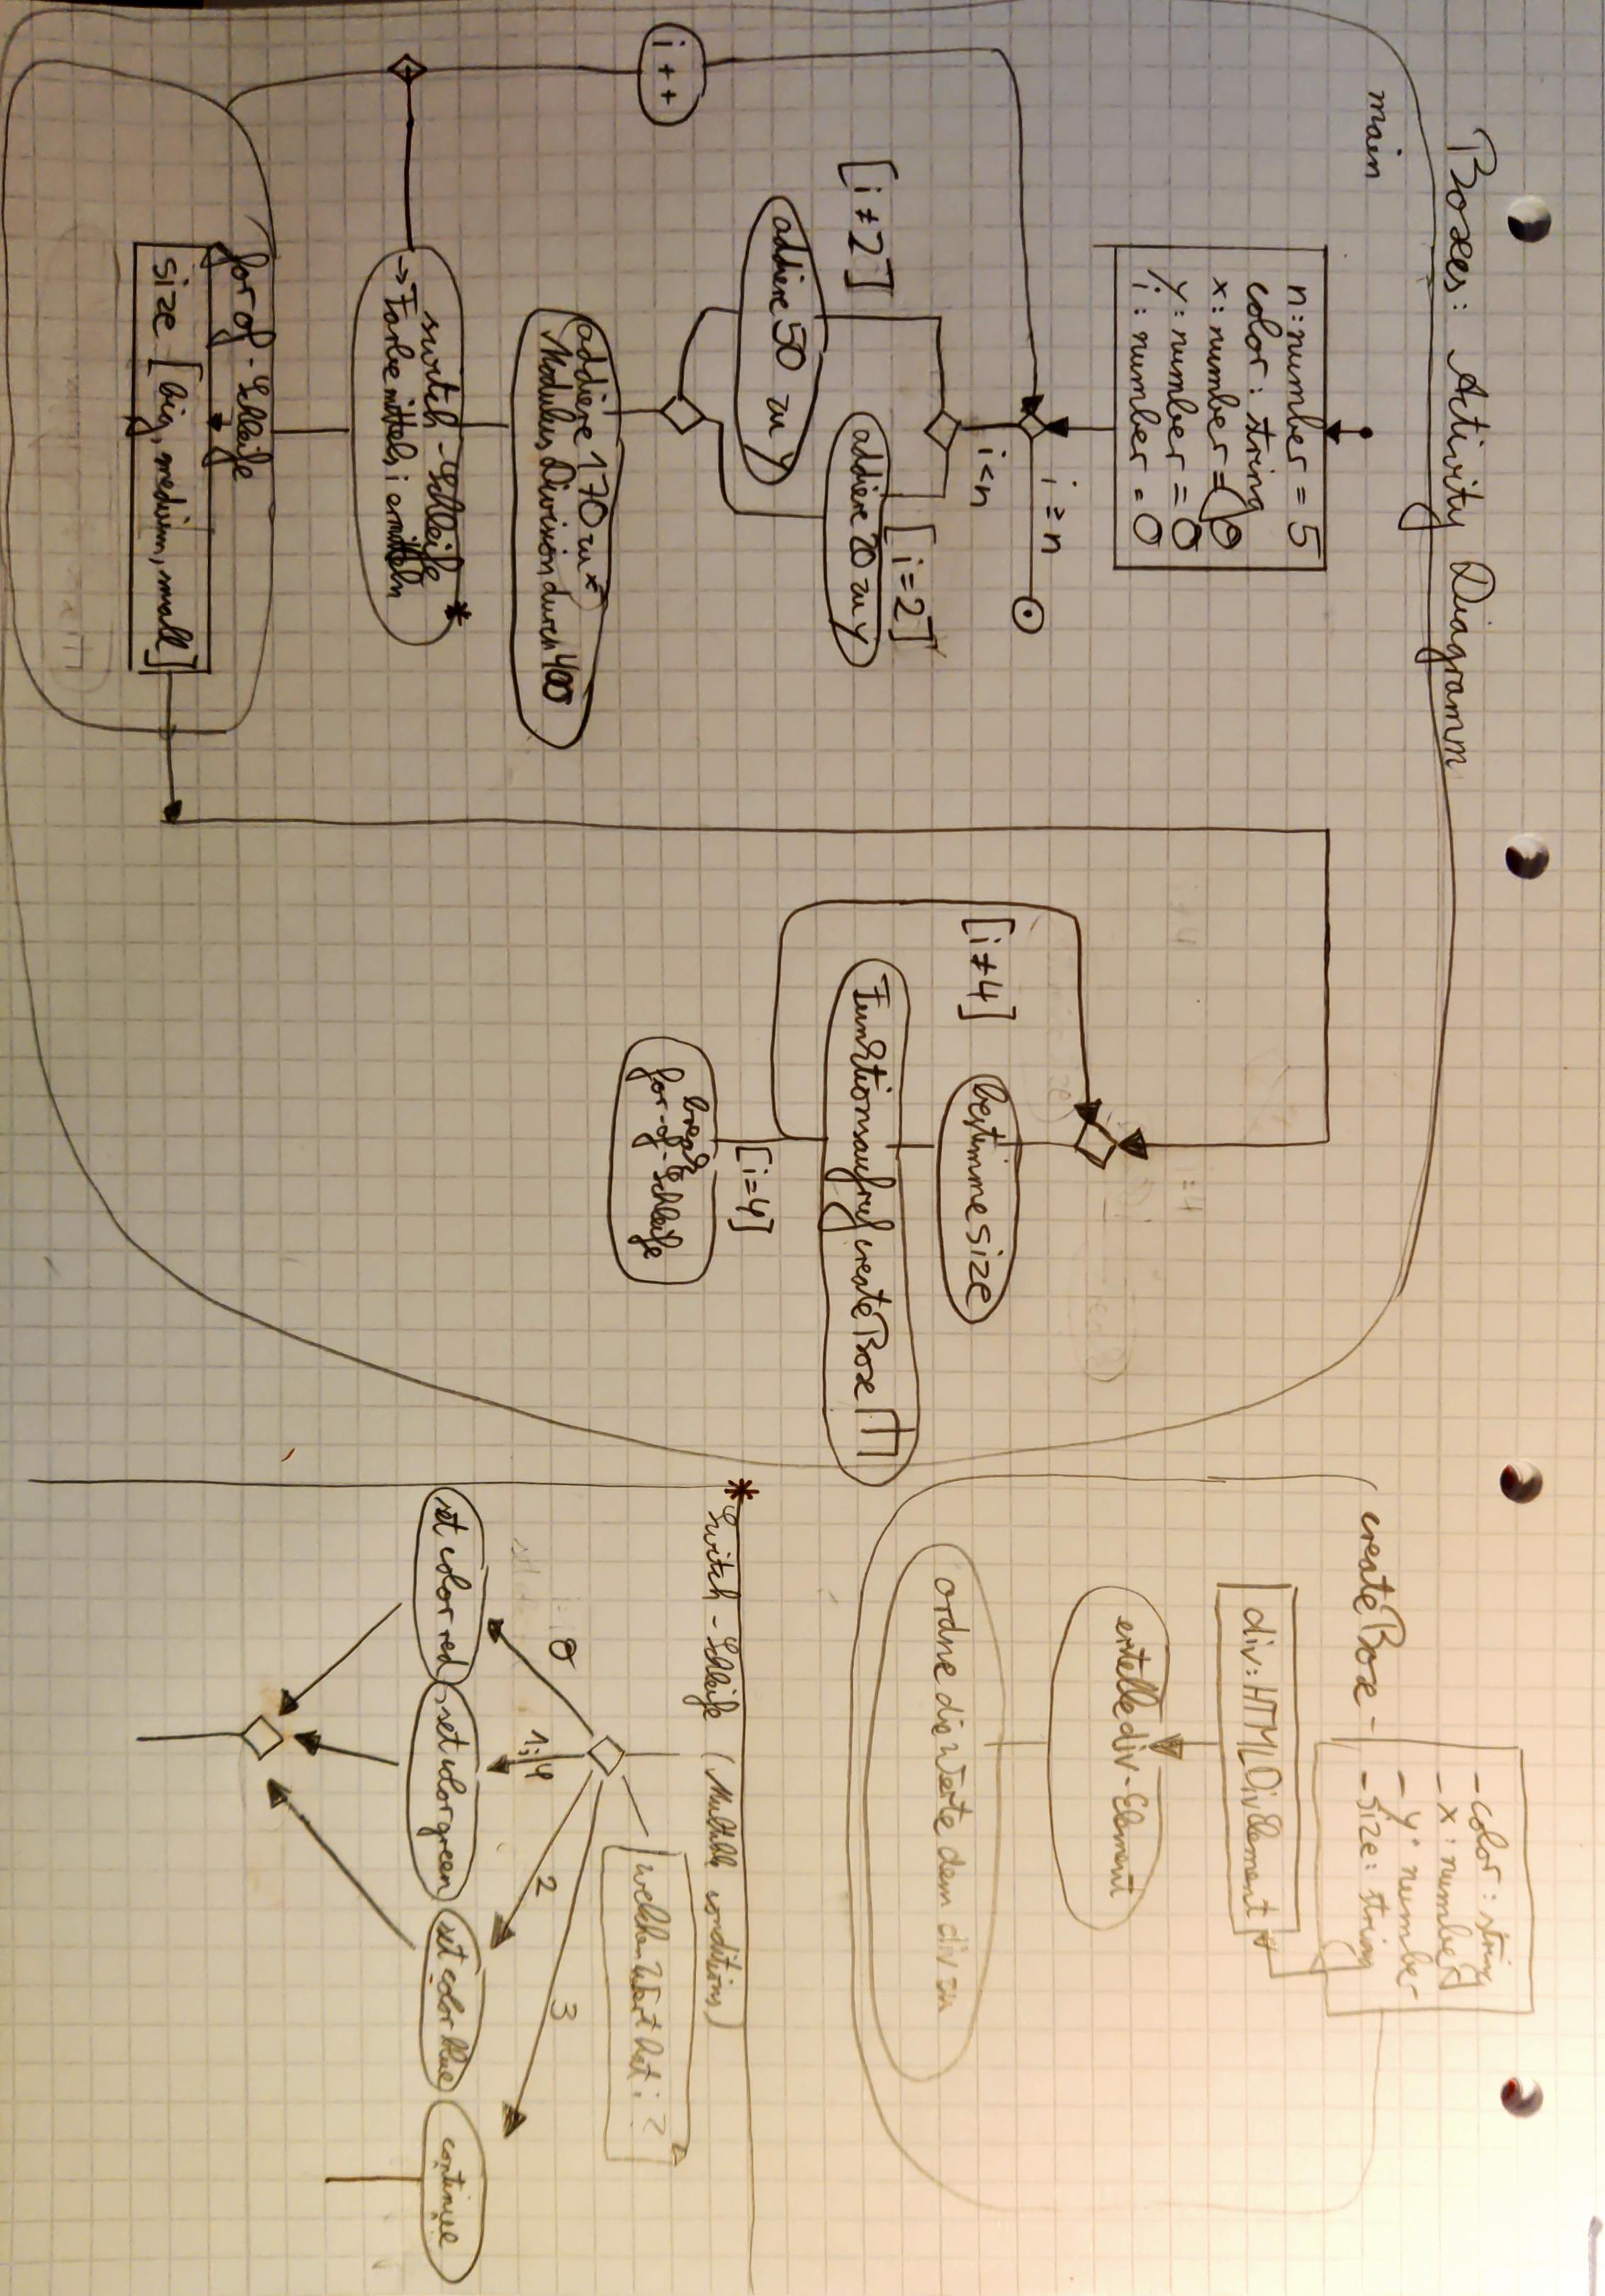 Boxes: Activity Diagramm
main
n: number = 5
color: string
x: number = 0
y: number = 0
i: number = 0
i ≥ n
i < n
[i ≠ 2]
[i = 2]
addiere 20 zu y
addiere 50 zu y
i ++
addiere 170 zu x
Modulus Division durch 400
switch - Schleife *
→ Farbe mittels i ermitteln
for of - Schleife
size [big, medium, small]
[i ≠ 4]
bestimme size
Funktionsaufruf createBox
[i = 4]
break
for-of-Schleife
createBox -
- color: string
- x: number
- y: number
- size: string
div: HTMLDivElement
erstelle div-Element
ordne die Werte dem div zu
* Switch - Schleife (Multible conditions)
welchen Wert hat i ?
0
1; 4
2
3
set color red
set color green
set color blue
continue